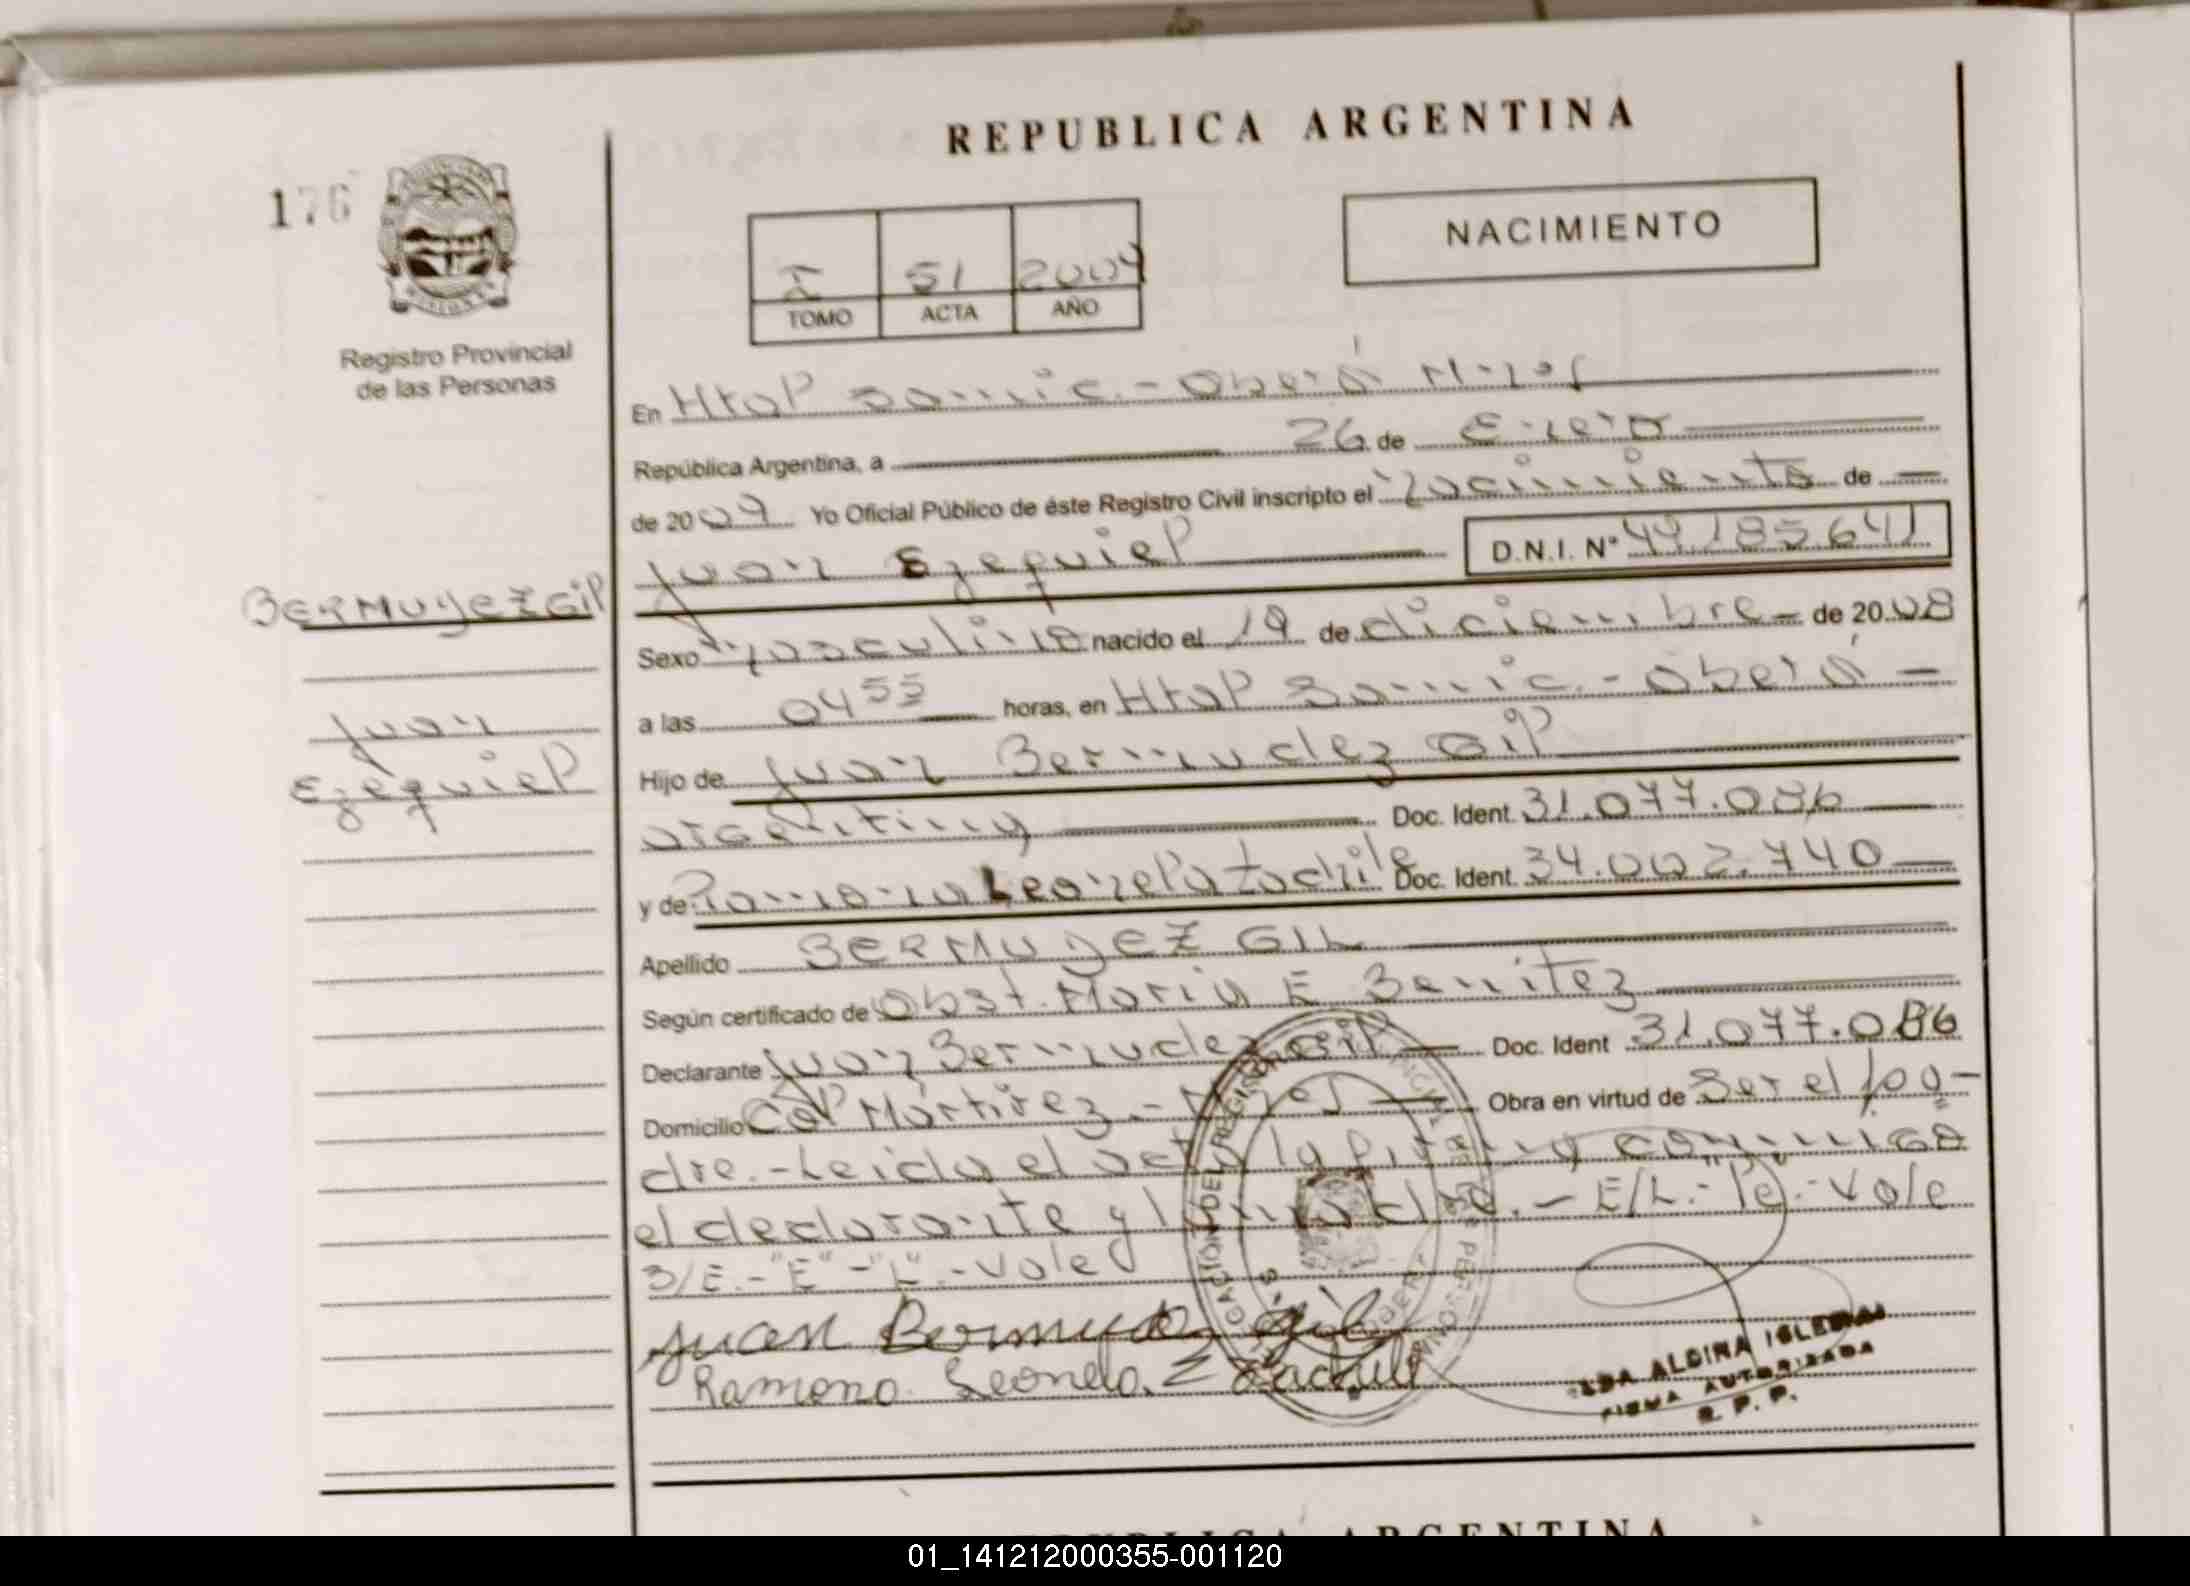 REPUBLICA ARGENTINA
176
NACIMIENTO
I 51 2009
TOMO ACTA AÑO
Registro Provincial
de las Personas
En Htal Samic.- Oberá Mnes
República Argentina, a 26 de Enero
de 2009 Yo Oficial Público de éste Registro Civil inscripto el nacimiento de
Juan Ezequiel D.N.I. N° 49.185.641
BERMUDEZ GIL
Sexo masculino nacido el 19 de diciembre de 2008
a las 04 55 horas, en Htal Samic.- Oberá
Juan
Ezequiel
Hijo de Juan Bermudez Gil
argentino Doc. Ident. 31.077.086
y de Ramona Leonela Doc. Ident. 34.002.740
Apellido BERMUDEZ GIL
Según certificado de Obst. Maria E Benitez
Declarante Juan Bermudez Gil Doc. Ident 31.077.086
Domicilio Cnel Mártirez - Mnes Obra en virtud de Ser el pa-
dre.- Leida el acta la firma conmigo
el declarante y la madre.- E/L.- "e".- Vale
S/E.- "E" - "L".- Vale
Juan Bermudez gil
Ramona Leonela
ALBINA IGLESIAS
FIRMA AUTORIZADA
R. P. P.
REPUBLICA ARGENTINA
01_141212000355-001120